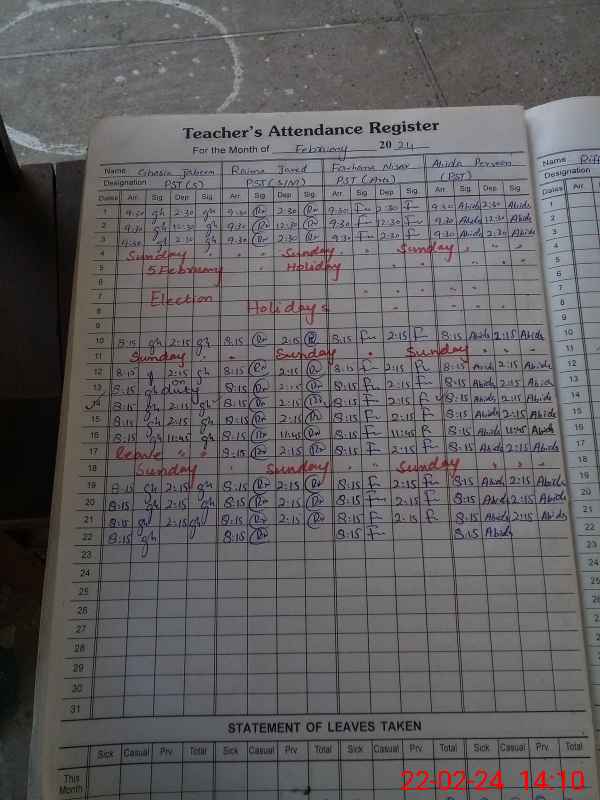 Teacher's Attendance Register
For the Month of February 2024
Name Ghosia Jabeen Raima Javed Farhana Nisar Abida Perveen
Designation PST (S) PST (S/M) PST (PST)
Dates Arr. Sig. Dep Sig. Arr. Sig. Dep Sig. Arr. Sig. Dep Sig. Arr. Sig. Dep Sig.
1 9:30 gh 2:30 gh 9:30 Rn 2:30 Rn 9:30 Fn 2:30 Fn 9:30 Abida 2:30 Abida
2 9:30 gh 12:30 gh 9:30 Rn 12:30 Rn 9:30 Fn 12:30 Fn 9:30 Abida 12:30 Abida
3 9:30 gh 2:30 gh 9:30 Rn 2:30 Rn 9:30 Fn 2:30 Fn 9:30 Abida 2:30 Abida
4 Sunday Sunday Sunday
5 5 February Holiday
6
7 Election
8 Holidays
9
10 8:15 gh 2:15 gh 8:15 Rn 2:15 R 8:15 Fn 2:15 Fn 8:15 Abida 2:15 Abida
11 Sunday Sunday Sunday
12 8:15 g 2:15 gh 8:15 Rn 2:15 Rn 8:15 Fn 2:15 Fn 8:15 Abida 2:15 Abida
13 8:15 gh on duty 8:15 Rn 2:15 Rn 8:15 Fn 2:15 Fn 8:15 Abida 2:15 Abida
14 8:15 gh 2:15 gh 8:15 Rn 2:15 8:15 Fn 2:15 Fn 8:15 Abida 2:15 Abida
15 8:15 gh 2:15 gh 8:15 Rn 2:15 Rn 8:15 Fn 2:15 F 8:15 Abida 2:15 Abida
16 8:15 gh 11:45 gh 8:15 Rn 11:45 Rn 8:15 Fn 11:45 F 8:15 Abida 11:45 Abida
17 Leave 8:15 Rn 2:15 Rn 8:15 Fn 2:15 F 8:15 Abida 2:15 Abida
18 Sunday Sunday Sunday
19 8:15 gh 2:15 gh 8:15 Rn 2:15 Rn 8:15 Fn 2:15 Fn 8:15 Abida 2:15 Abida
20 8:15 gh 2:15 gh 8:15 Rn 2:15 Rn 8:15 Fn 2:15 F 8:15 Abida 2:15 Abida
21 8:15 gh 2:15 gh 8:15 Rn 2:15 Rn 8:15 F 2:15 F 8:15 Abida 2:15 Abida
22 8:15 gh 8:15 Rn 8:15 F 8:15 Abida
23
24
25
26
27
28
29
30
31
STATEMENT OF LEAVES TAKEN
Sick Casual Prv. Total Sick Casual Prv. Total Sick Casual Prv. Total Sick Casual Prv. Total
This Month
Name Riff
Designation
Dates Arr.
22-02-24 14:10